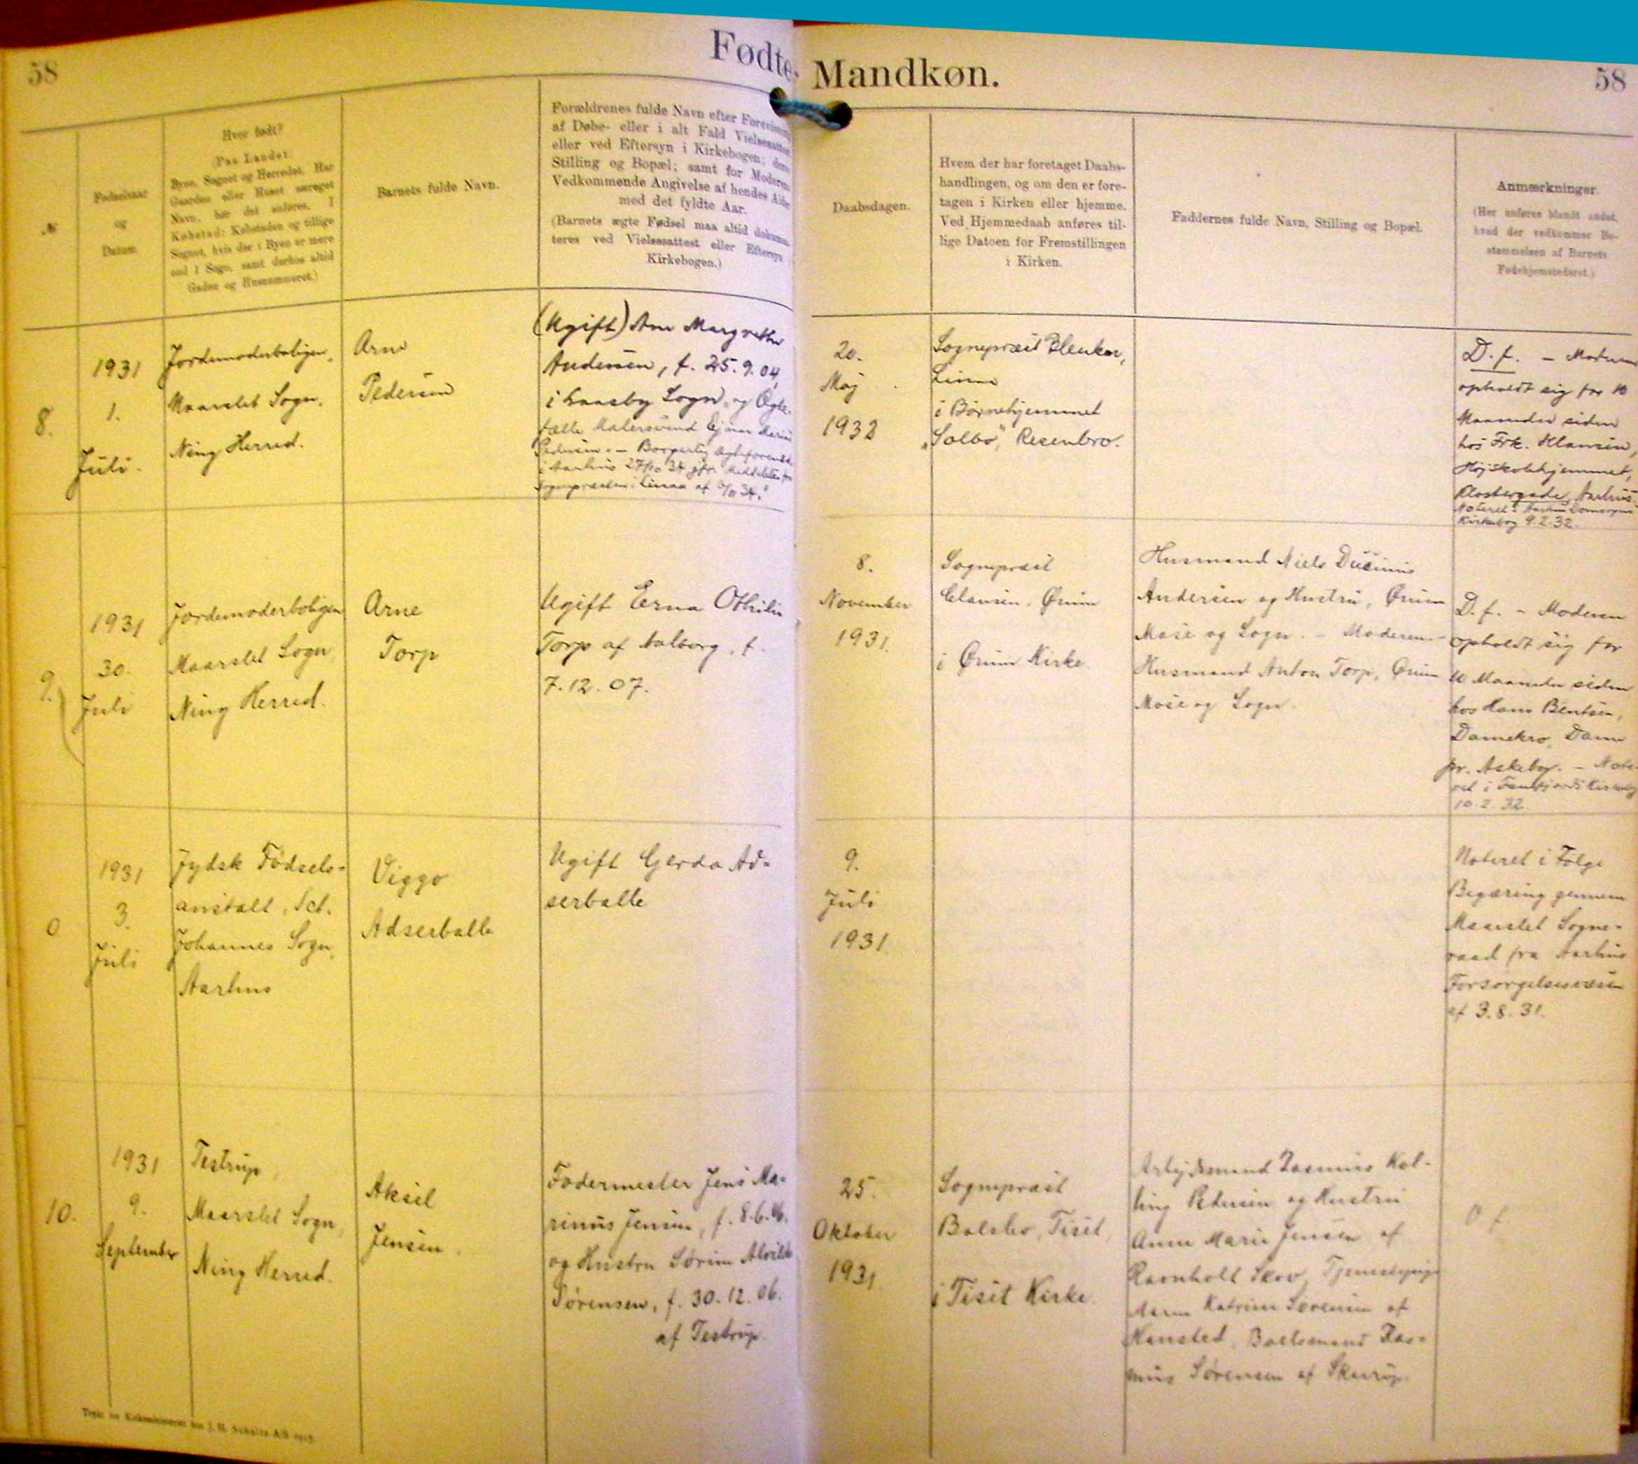 58
Fødte
Mandkøn.
58
№
Fødselsaar
og
Datum.
Hvor født?
(Paa Landet:
Byen, Sognet og Herredet. Har
Gaarden eller Huset særeget
Navn, bør det anføres. I
Købstad: Købstaden og tillige
Sognet, hvis der i Byen er mere
end 1 Sogn, samt derhos altid
Gaden og Husnummeret.)
Barnets fulde Navn.
Forældrenes fulde Navn efter
af Døbe- eller i alt Fald
eller ved Eftersyn i Kirkebogen;
Stilling og Bopæl; samt for
Vedkommende Angivelse af hendes
med det fyldte Aar.
(Barnets ægte Fødsel maa altid
teres ved Vielsesattest eller Eftersyn
Kirkebogen.)
Daabsdagen.
Hvem der har foretaget Daabs-
handlingen, og om den er fore-
tagen i Kirken eller hjemme.
Ved Hjemmedaab anføres til-
lige Datoen for Fremstillingen
i Kirken.
Faddernes fulde Navn, Stilling og Bopæl.
Anmærkninger.
(Her anføres blandt andet,
hvad der vedkommer Be-
stemmelsen af Barnets
Fødehjemstedsret.)
8.
1931
1.
Juli.
Jordemoderboligen,
Maarslet Sogn,
Ning Herred.
Arne
Pedersen
(Ugift) Ane Margrethe
Andersen, f. 25.9.04,
i Laasby Sogn, og Ægte-
fælle Malersvend Ejnar Marius
Pedersen. – Borgerlig
i Aarhus 27/10 34 jfr. Meddelelse fra
Sognepræsten i Linaa af
20.
Maj
1932
Sognepræst Blenker,
Linaa
i Børnehjemmet
„Solbo", Resenbro.
D. f. – Moderen
opholdt sig for 10
Maaneder siden
hos Frk. Klausen,
Højskolehjemmet,
Klostergade, Aarhus.
Noteret i Aarhus Domsogns
Kirkebog 9.2.32.
9.
1931
30.
Juli
Jordemoderboligen
Maarslet Sogn
Ning Herred.
Arne
Torp
Ugift Erna Othilie
Torp af Aalborg, f.
7.12.07.
8.
November
1931.
Sognepræst
Clausen, Ørum
i Ørum Kirke.
Husmand Niels
Andersen og Hustru, Ørum
Mose og Sogn. – Moderen. –
Husmand Anton Torp, Ørum
Mose og Sogn.
D. f. – Moderen
opholdt sig for
10 Maaneder siden
hos Hans Bentsen,
Damekro, Damme
pr. Askeby. – Note-
ret i Fanefjords Kirkebog
10.2.32.
0
1931
3.
Juli
Jydsk Fødsels-
anstalt, Sct.
Johannes Sogn,
Aarhus
Viggo
Adserballe
Ugift Gerda Ad-
serballe
9.
Juli
1931.
Noteret i Følge
Begæring gennem
Maarslet Sogne-
raad fra Aarhus
Forsorgelsesvæsen
af 3.8.31.
10.
1931
9.
September
Testrup,
Maarslet Sogn,
Ning Herred.
Aksel
Jensen.
Fodermester Jens Ma-
rinus Jensen, f. 8.6.06.
og Hustru Sørine Alvilda
Sørensen, f. 30.12.06.
af Testrup.
25.
Oktober
1931.
Sognepræst
Balslev, Tiset,
i Tiset Kirke.
Arbejdsmand Rasmus Kol-
ling Pedersen og Hustru
Anne Marie Jensen af
Ravnholt Skov,
Maren Katrine Sørensen af
Hansted, Boelsmand Ras-
mus Sørensen af
D f.
Trykt
J. H. Schultz A/S